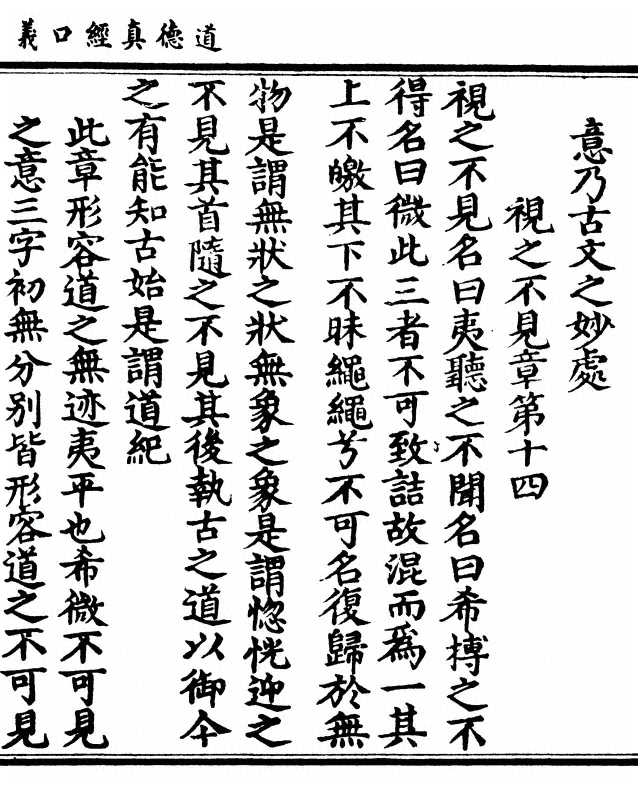 道德真經口義
意乃古文之妙處
視之不見章第十四
視之不見名曰夷聽之不聞名曰希搏之不
得名曰微此三者不可致詰故混而爲一其
上不皦其下不昧繩繩兮不可名復歸於無
物是謂無狀之狀無象之象是謂惚恍迎之
不見其首隨之不見其後執古之道以御今
之有能知古始是謂道紀
此章形容道之無迹夷平也希微不可見
之意三字初無分别皆形容道之不可見